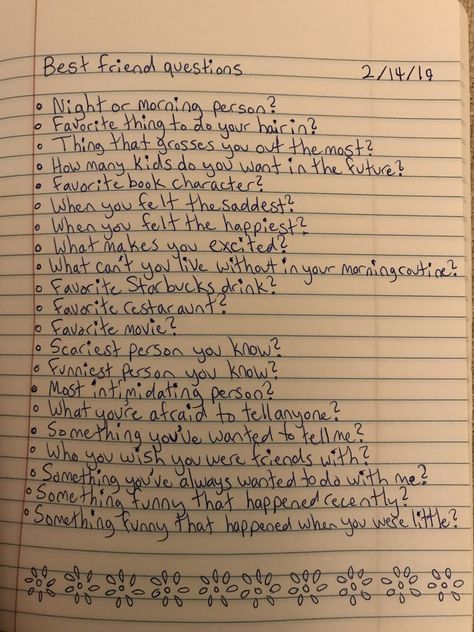 Best friend questions 2/14/19
• Night or morning person?
• Favorite thing to do your hair in?
• Thing that grosses you out the most?
• How many kids do you want in the future?
• Favorite book character?
• When you felt the saddest?
• When you felt the happiest?
• What makes you excited?
• What can't you live without in your morning routine?
• Favorite Starbucks drink?
• Favorite restaraunt?
• Favorite movie?
• Scariest person you know?
• Funniest person you know?
• Most intimidating person?
• What you're afraid to tell anyone?
• Something you've wanted to tell me?
• Who you wish you were friends with?
• Something you've always wanted to do with me?
• Something funny that happened recently?
• Something funny that happened when you were little?